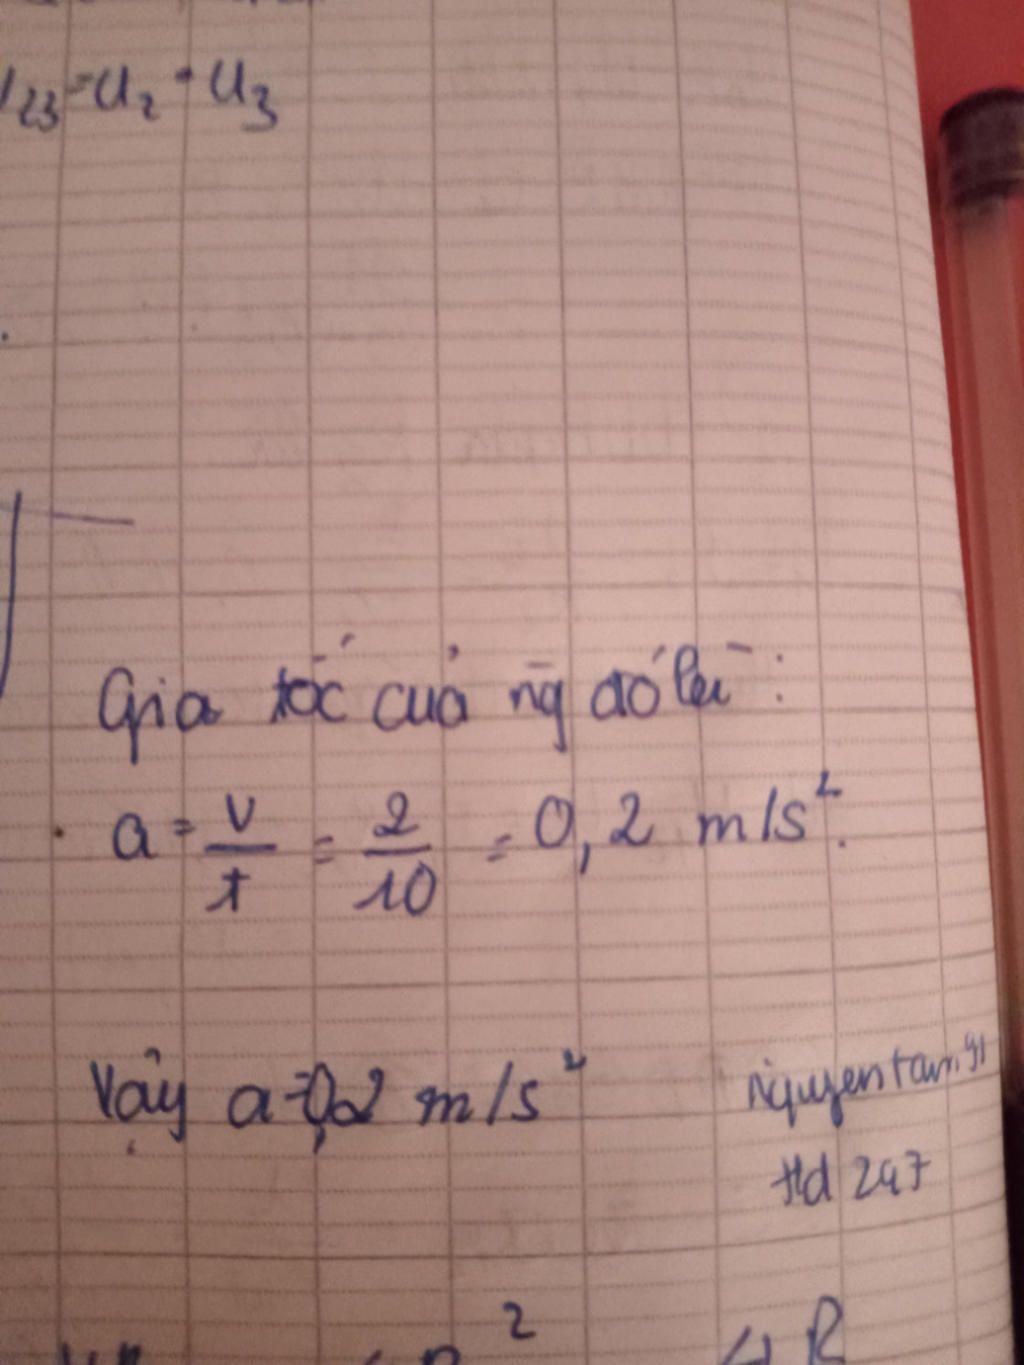 U₂₃ = U₂ = U₃
Gia tốc của ng đó là:
a = v/t = 2/10 = 0,2 m/s².
Vậy a = 0,2 m/s²
nguyentam.91
Hd 247
2
4R